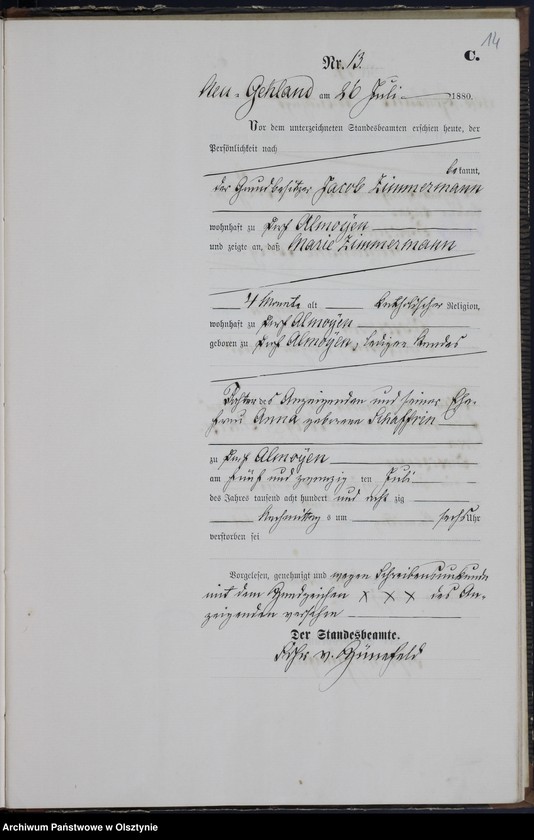 14
C.
Nr. 13.
Neu-Gehland am 26 Juli 1880.
Vor dem unterzeichneten Standesbeamten erschien heute, der
Persönlichkeit nach
bekannt,
der Grundbesitzer Jacob Zimmermann
wohnhaft zu Dorf Almoyen
und zeigte an, daß Marie Zimmermann
4 Monate alt katholischer Religion,
wohnhaft zu Dorf Almoyen
geboren zu Dorf Almoyen, ledigen Standes
Tochter des Anzeigenden und seiner Ehe-
frau Anna geborene Schaffrin
zu Dorf Almoyen
am fünf und zwanzig ten Juli
des Jahres tausend acht hundert und acht zig
Nachmittag s um sechs Uhr
verstorben sei
Vorgelesen, genehmigt und wegen Schreibensunkunde
mit dem Handzeichen x x x des An-
zeigenden versehen
Der Standesbeamte.
v. Hünefeld
Archiwum Państwowe w Olsztynie